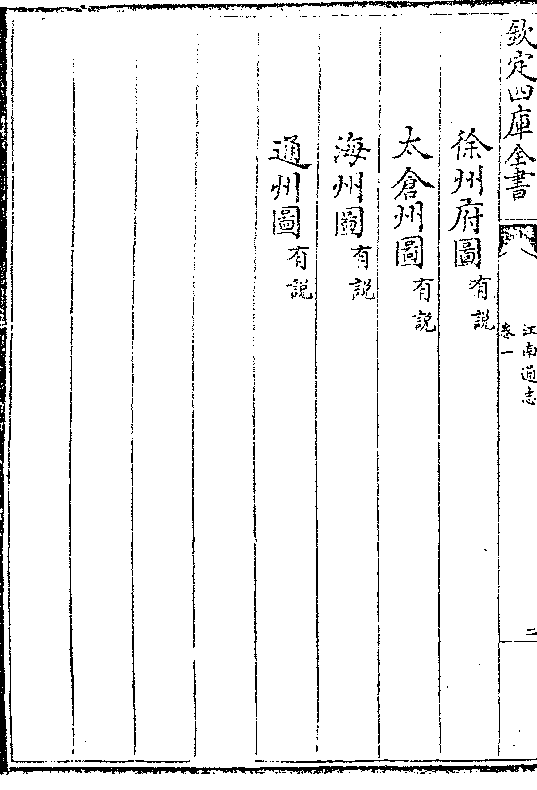 欽定四庫全書
江南通志
卷一
二
徐州府圖有説
太倉州圖有説
海州圖有説
通州圖有説